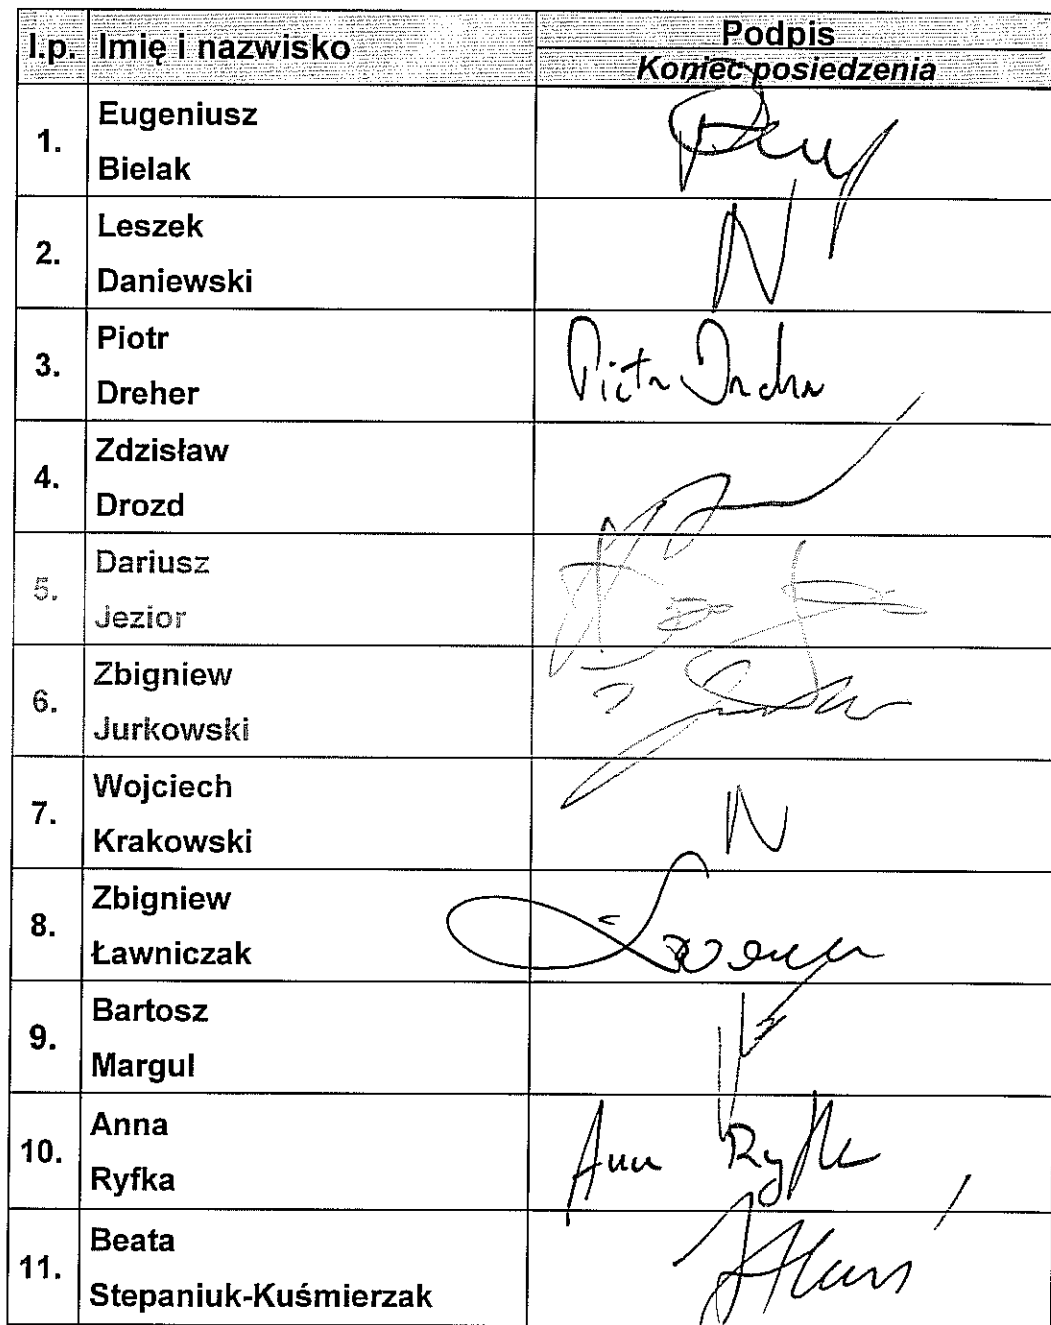 l.p. Imię i nazwisko Podpis
Koniec posiedzenia
1. Eugeniusz
Bielak
2. Leszek
Daniewski
N
3. Piotr
Dreher
Piotr Dreher
4. Zdzisław
Drozd
5. Dariusz
Jezior
6. Zbigniew
Jurkowski
7. Wojciech
Krakowski
N
8. Zbigniew
Ławniczak
9. Bartosz
Margul
10. Anna
Ryfka
Anna Ryfka
11. Beata
Stepaniuk-Kuśmierzak